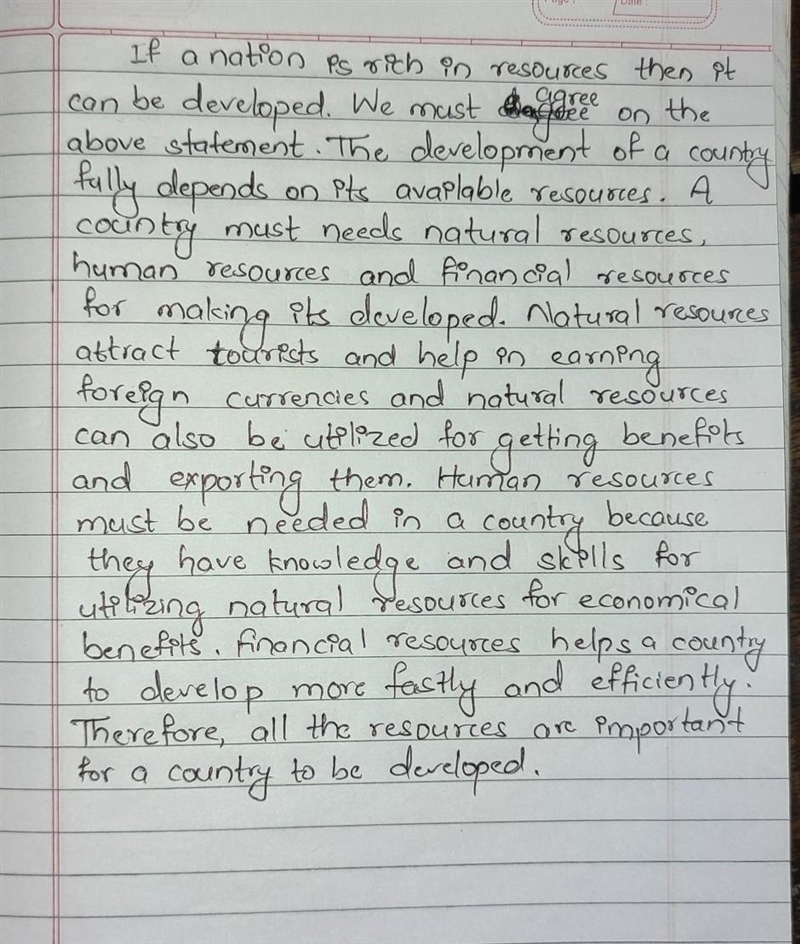 Page :
Date :
If a nation is rich in resources then it
can be developed. We must agree on the
above statement. The development of a country
fully depends on its available resources. A
country must needs natural resources,
human resources and financial resources
for making its developed. Natural resources
attract tourists and help in earning
foreign currencies and natural resources
can also be utilized for getting benefits
and exporting them. Human resources
must be needed in a country because
they have knowledge and skills for
utilizing natural resources for economical
benefits. Financial resources helps a country
to develop more fastly and efficiently.
Therefore, all the resources are important
for a country to be developed.